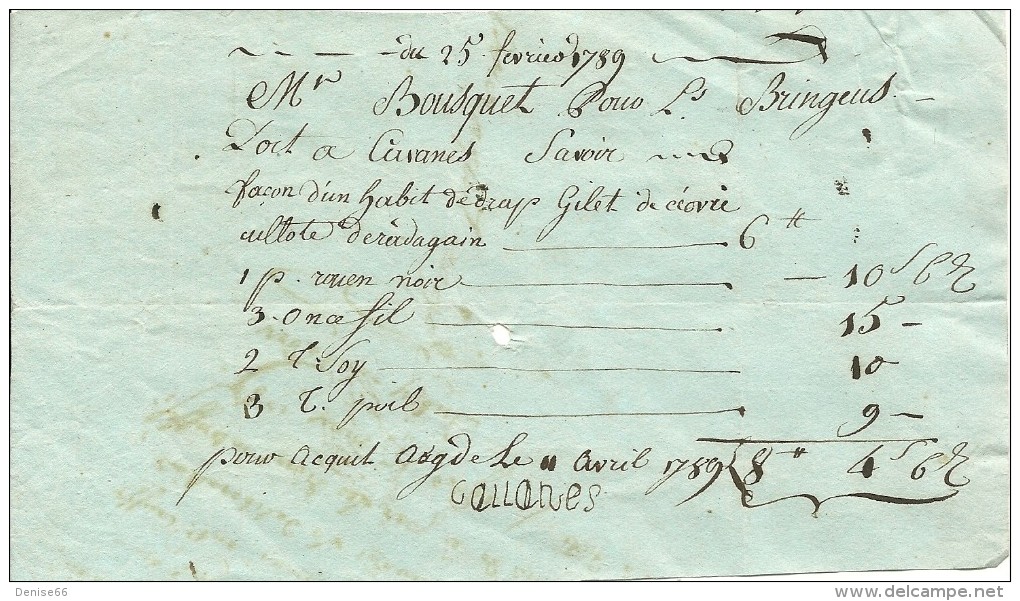 du 25 fevrier 1789
Mr Bousquet Pour Ls Bringeus
Doit a Cavanes Savoir
façon d'un habit dédrap Gilet de
cullote derédagain 6 ₶
1 p. rouen noir 10 s 6 d
3. Once fil 15
2 T. Soy 10
3 T. poil 9
pour acquit Le 11 avril 1789 8 ₶ 4 s 6 d
Cavanes
Denise66
delcampe.net